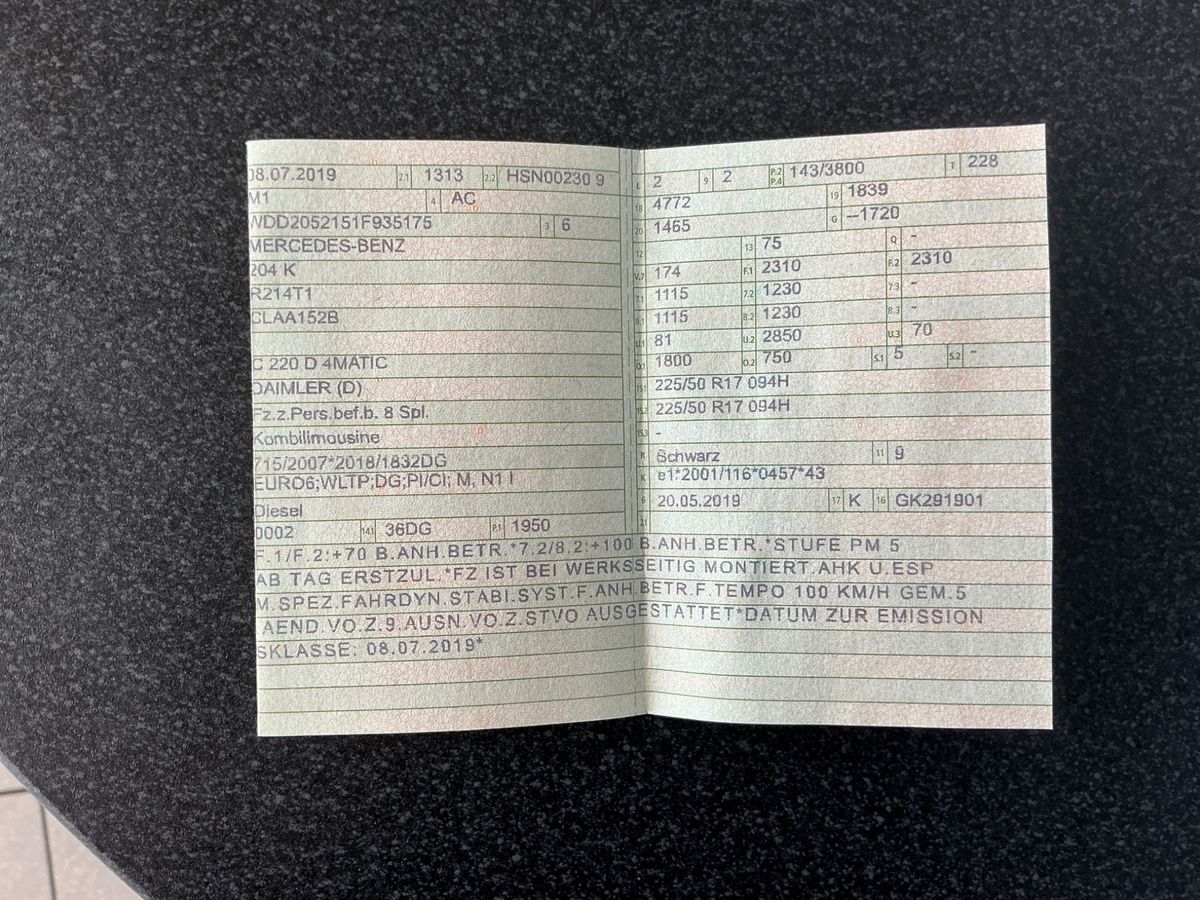 08.07.2019 2.1 1313 2.2 HSN00230 9
M1 4 AC
WDD2052151F935175 3 6
MERCEDES-BENZ
204 K
R214T1
CLAA152B
C 220 D 4MATIC
DAIMLER (D)
Fz.z.Pers.bef.b. 8 Spl.
Kombilimousine
715/2007*2018/1832DG
EURO6;WLTP;DG;PI/CI; M, N1 I
Diesel
0002 14.1 36DG P.1 1950
L 2 9 2 P.2 P.4 143/3800 T 228
18 4772 19 1839
20 1465 G --1720
12 13 75 Q -
V.7 174 F.1 2310 F.2 2310
7.1 1115 7.2 1230 7.3 -
8.1 1115 8.2 1230 8.3 -
U.1 81 U.2 2850 U.3 70
O.1 1800 O.2 750 S.1 5 S.2 -
15.1 225/50 R17 094H
15.2 225/50 R17 094H
15.3 -
R Schwarz 11 9
K e1*2001/116*0457*43
6 20.05.2019 17 K 16 GK291901
21
F.1/F.2:+70 B.ANH.BETR.*7.2/8.2:+100 B.ANH.BETR.*STUFE PM 5
AB TAG ERSTZUL.*FZ IST BEI WERKSSEITIG MONTIERT.AHK U.ESP
M.SPEZ.FAHRDYN.STABI.SYST.F.ANH.BETR.F.TEMPO 100 KM/H GEM.5
.AEND.VO.Z.9.AUSN.VO.Z.STVO AUSGESTATTET*DATUM ZUR EMISSION
SKLASSE: 08.07.2019*